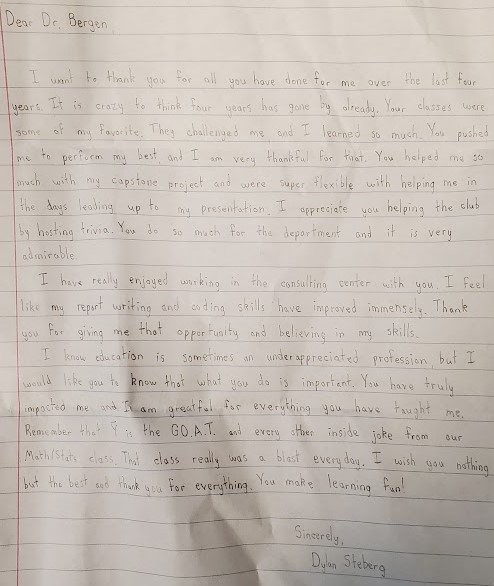 Dear Dr. Bergen,
I want to thank you for all you have done for me over the last four
years. It is crazy to think four years has gone by already. Your classes were
some of my favorite. They challenged me and I learned so much. You pushed
me to perform my best, and I am very thankful for that. You helped me so
much with my capstone project and were super flexible with helping me in
the days leading up to my presentation. I appreciate you helping the club
by hosting trivia. You do so much for the department and it is very
admirable.
I have really enjoyed working in the consulting center with you. I feel
like my report writing and coding skills have improved immensely. Thank
you for giving me that opportunity and believing in my skills.
I know education is sometimes an underappreciated profession, but I
would like you to know that what you do is important. You have truly
impacted me and I am greatful for everything you have taught me.
Remember that is the G.O.A.T. and every other inside joke from our
Math/Stats class. That class really was a blast everyday. I wish you nothing
but the best and thank you for everything. You make learning fun!
Sincerely,
Dylan Steberg